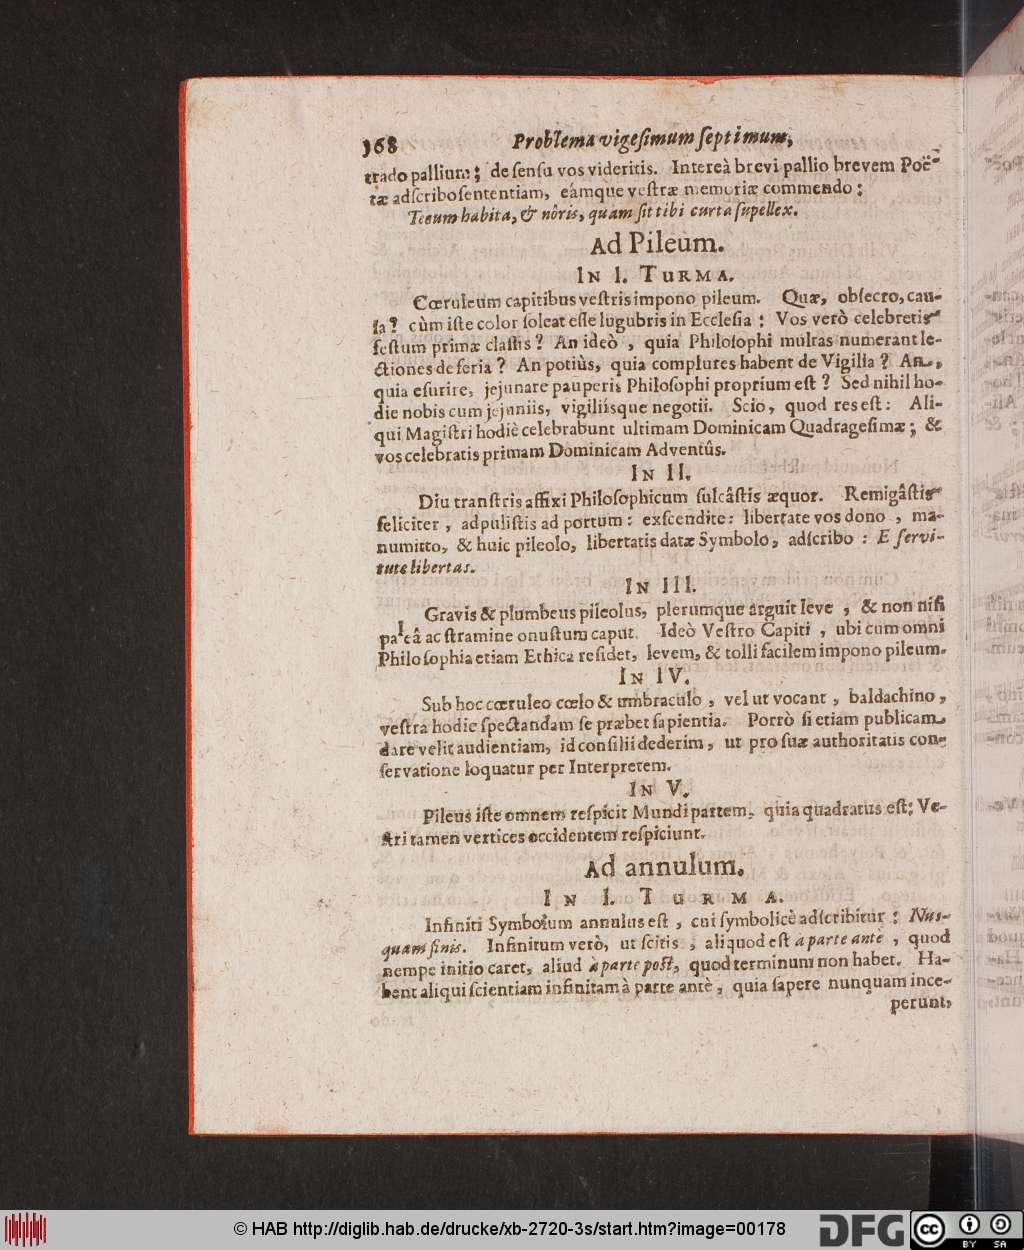 168 Problema vigeſimum ſeptimum,
trado pallium; de ſenſu vos videritis. Intereà brevi pallio brevem Poë-
tæ adſcribo ſententiam, eâmque veſtræ memoriæ commendo:
Tecum habita, & nôris, quam ſit tibi curta ſupellex.
Ad Pileum.
IN I. TURMA.
Cœruleum capitibus veſtris impono pileum. Quæ, obſecro, cau-
ſa? cùm iſte color ſoleat eſſe lugubris in Eccleſia: Vos verò celebretis
feſtum primæ claſſis? An ideò, quia Philoſophi multas numerant le-
ctiones de feria? An potiùs, quia complures habent de Vigilia? An,
quia eſurire, jejunare pauperis Philoſophi proprium eſt? Sed nihil ho-
die nobis cum jejuniis, vigiliísque negotii. Scio, quod res eſt: Ali-
qui Magiſtri hodiè celebrabunt ultimam Dominicam Quadrageſimæ; &
vos celebratis primam Dominicam Adventûs.
IN II.
Diu tranſtris affixi Philoſophicum ſulcâſtis æquor. Remigâſtis
feliciter, adpuliſtis ad portum: exſcendite: libertate vos dono, ma-
numitto, & huic pileolo, libertatis datæ Symbolo, adſcribo: E ſervi-
tute libertas.
IN III.
Gravis & plumbeus pileolus, plerumque arguit leve, & non niſi
paleâ ac ſtramine onuſtum caput. Ideò Veſtro Capiti, ubi cum omni
Philoſophia etiam Ethica reſidet, levem, & tolli facilem impono pileum.
IN IV.
Sub hoc cœruleo cœlo & umbraculo, vel ut vocant, baldachino,
veſtra hodie ſpectandam ſe præbet ſapientia. Porrò ſi etiam publicam
dare velit audientiam, id conſilii dederim, ut pro ſuæ authoritatis con-
ſervatione loquatur per Interpretem.
IN V.
Pileus iſte omnem reſpicit Mundi partem, quia quadratus eſt; Ve-
ſtri tamen vertices occidentem reſpiciunt.
Ad annulum.
IN I. TURMA.
Infiniti Symbolum annulus eſt, cui ſymbolicè adſcribitur: Nus-
quam finis. Infinitum verò, ut ſcitis, aliquod eſt à parte antè, quod
nempe initio caret, aliud à parte poſt, quod terminum non habet. Ha-
bent aliqui ſcientiam infinitam à parte antè, quia ſapere nunquam ince-
perunt,
© HAB http://diglib.hab.de/drucke/xb-2720-3s/start.htm?image=00178
DFG
cc BY SA